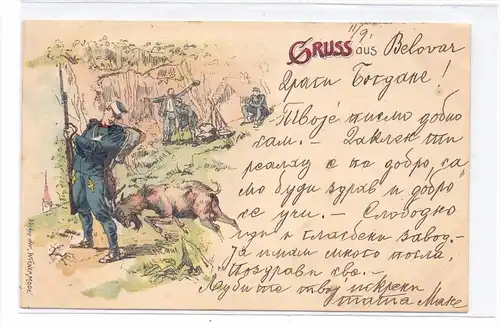 11/9.
GRUSS aus Belovar
Драги Богдане!
Твоје писмо добио
сам. –
реалку с на добро, са
мо буди здрав и добро
се учи. – Слободно
иди у гласбени завод. –
Ја имам много посла,
Поздрави све. –
Љуби те твој искрени
тата Маке